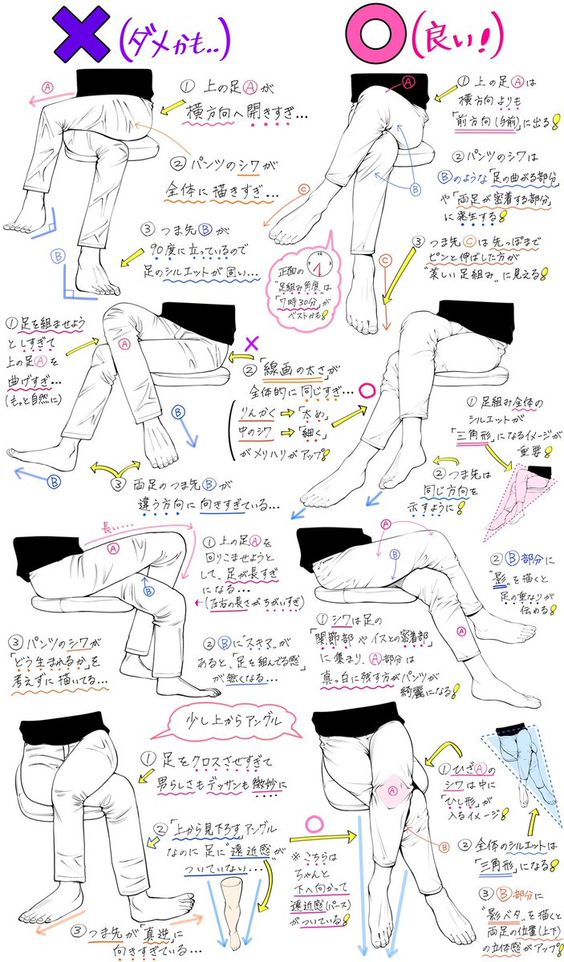 (ダメかも..)
(良い!)
① 上の足Ⓐが
横方向へ開きすぎ…
② パンツのシワが
全体に描きすぎ…
③ つま先Ⓑが
90度に立っているので
足のシルエットが固い…
Ⓐ
Ⓑ
① 上の足Ⓐは
横方向よりも
「前方向(手前)」に出る!
② パンツのシワは
Ⓑのような「足の曲がる部分」
や「両足が密着する部分」
に発生する!
③ つま先Ⓒは先っぽまで
ピンと伸ばした方が
"美しい足組み"に見える!
Ⓐ
Ⓑ
Ⓒ
Ⓒ
正面の
"足組み角度"は
「7時30分」が
ベストかも!
① 足を組ませよう
としすぎて
上の足Ⓐを
曲げすぎ…
(もっと自然に)
Ⓐ
Ⓑ
Ⓑ
②「線画の太さ」が
全体的に同じすぎ…
りんかく→「太め」
中のシワ→「細く」
がメリハリがアップ!
③ 両足のつま先Ⓑが
違う方向に向きすぎている…
① 足組み全体の
シルエットが
「三角形」になるイメージが
重要!
② つま先は
同じ方向を
示すように!
長い…
Ⓐ
Ⓑ
① 上の足Ⓐを
回りこませようと
して、足が長すぎ
になる…
(左右の長さがちがいすぎ)
② Ⓑに"スキマ"が
あると、「足を組んでる感」
が無くなる…
③ パンツのシワが
「どう生まれるか」を
考えずに描いてる…
Ⓐ
Ⓑ
Ⓐ
① シワは足の
「関節部やイスとの密着部」
に集まり、Ⓐ部分は
真っ白に残す方がパンツが
綺麗になる!
② Ⓑ部分に
"影"を描くと
足の重なりが
伝わる!
少し上からアングル
① 足をクロスさせすぎて
男らしさもデッサンも微妙に
②「上から見下ろすアングル」
なのに足に"遠近感"が
ついていない…
③ つま先が「真逆」に
向きすぎている…
※こちらは
ちゃんと
下へ向かって
遠近感(パース)
がついている!
Ⓐ
Ⓑ
① ひざⒶの
シワは中に
「ひし形」が
入るイメージ!
② 全体のシルエットは
「三角形」になる!
③ Ⓑ部分に
"影ベタ"を描くと
両足の位置(上下)
の立体感がアップ!